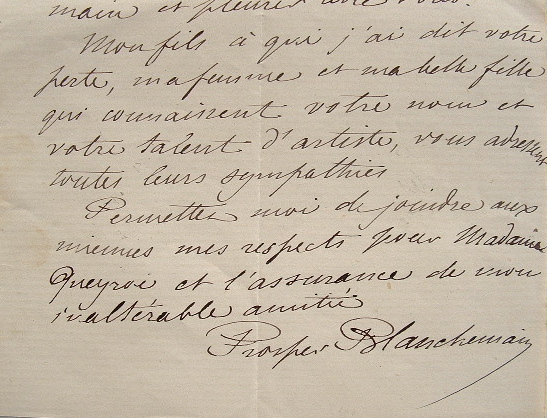 main et pleurer avec vous.
Mon fils à qui j'ai dit votre
perte, ma femme et ma belle fille
qui connaissent votre nom et
votre talent d'artiste, vous adressent
toutes leurs sympathies
Permettez moi de joindre aux
miennes mes respects pour Madame
Queyroi et l'assurance de mon
inaltérable amitié
Prosper Blanchemain